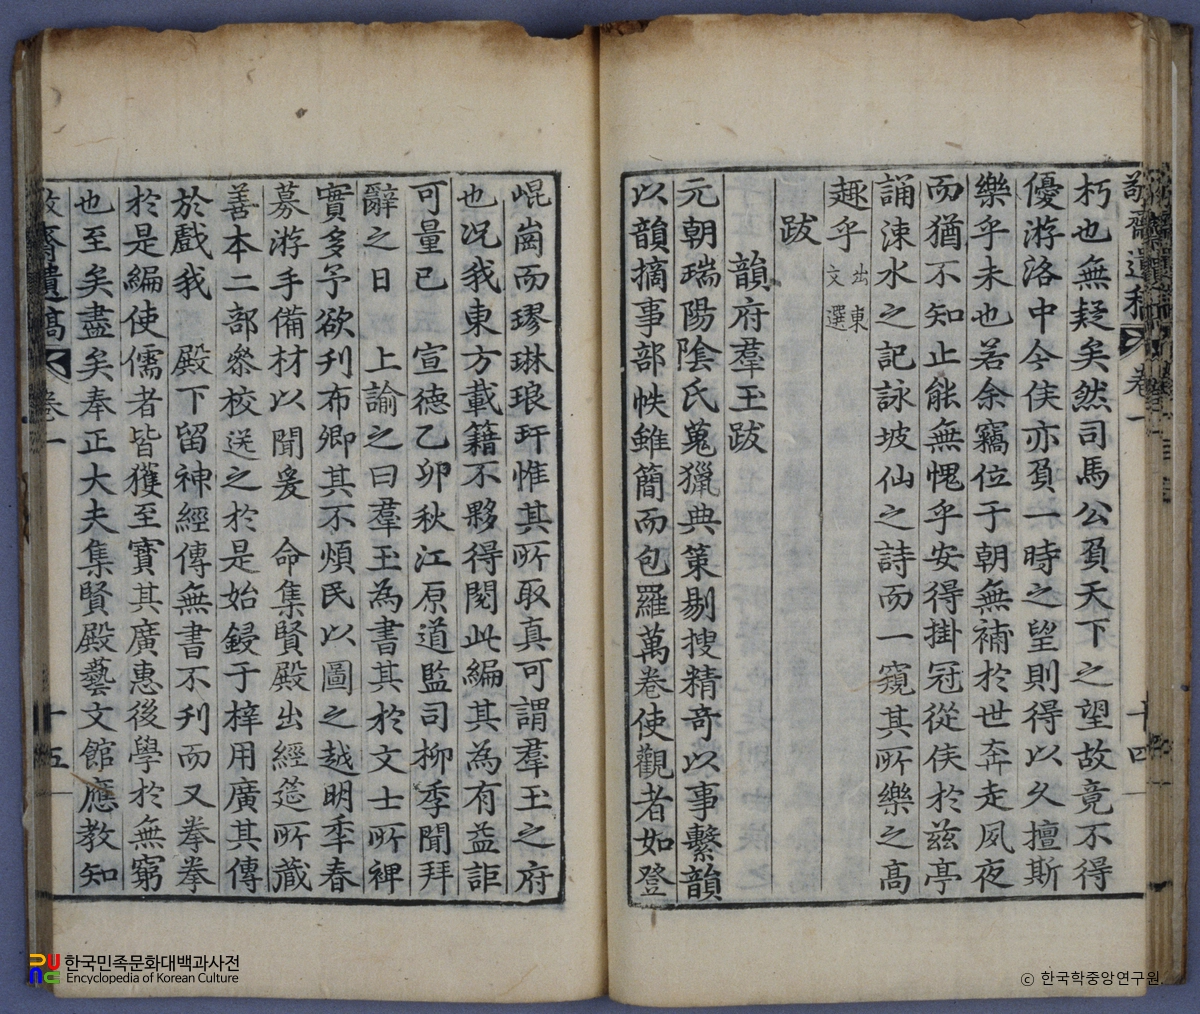 敬齋遺稿 卷一 十四
朽也無疑矣然司馬公負天下之望故竟不得
優游洛中今侯亦負一時之望則得以久擅斯
樂乎未也若余竊位于朝無補於世奔走夙夜
而猶不知止能無愧乎安得掛冠從侯於茲亭
誦涑水之記詠坡仙之詩而一窺其所樂之高
趣乎 出東文選
跋
韻府羣玉跋
元朝瑞陽陰氏蒐獵典策剔搜精奇以事繫韻
以韻摘事部帙雖簡而包羅萬卷使觀者如登
崐崗而璆琳琅玕惟其所取真可謂羣玉之府
也况我東方載籍不夥得閱此編其為有益詎
可量已 宣德乙卯秋江原道監司柳季聞拜
辭之日 上諭之曰羣玉為書其於文士所裨
實多予欲刊布卿其不煩民以圖之越明年春
募游手備材以聞爰 命集賢殿出經筵所藏
善本二部參校送之於是始鋟于梓用廣其傳
於戲我 殿下留神經傳無書不刊而又拳拳
於是編使儒者皆獲至寶其廣惠後學於無窮
也至矣盡矣奉正大夫集賢殿藝文館應教知
敬齋遺稿 卷一 十五
한국민족문화대백과사전
Encyclopedia of Korean Culture
ⓒ 한국학중앙연구원